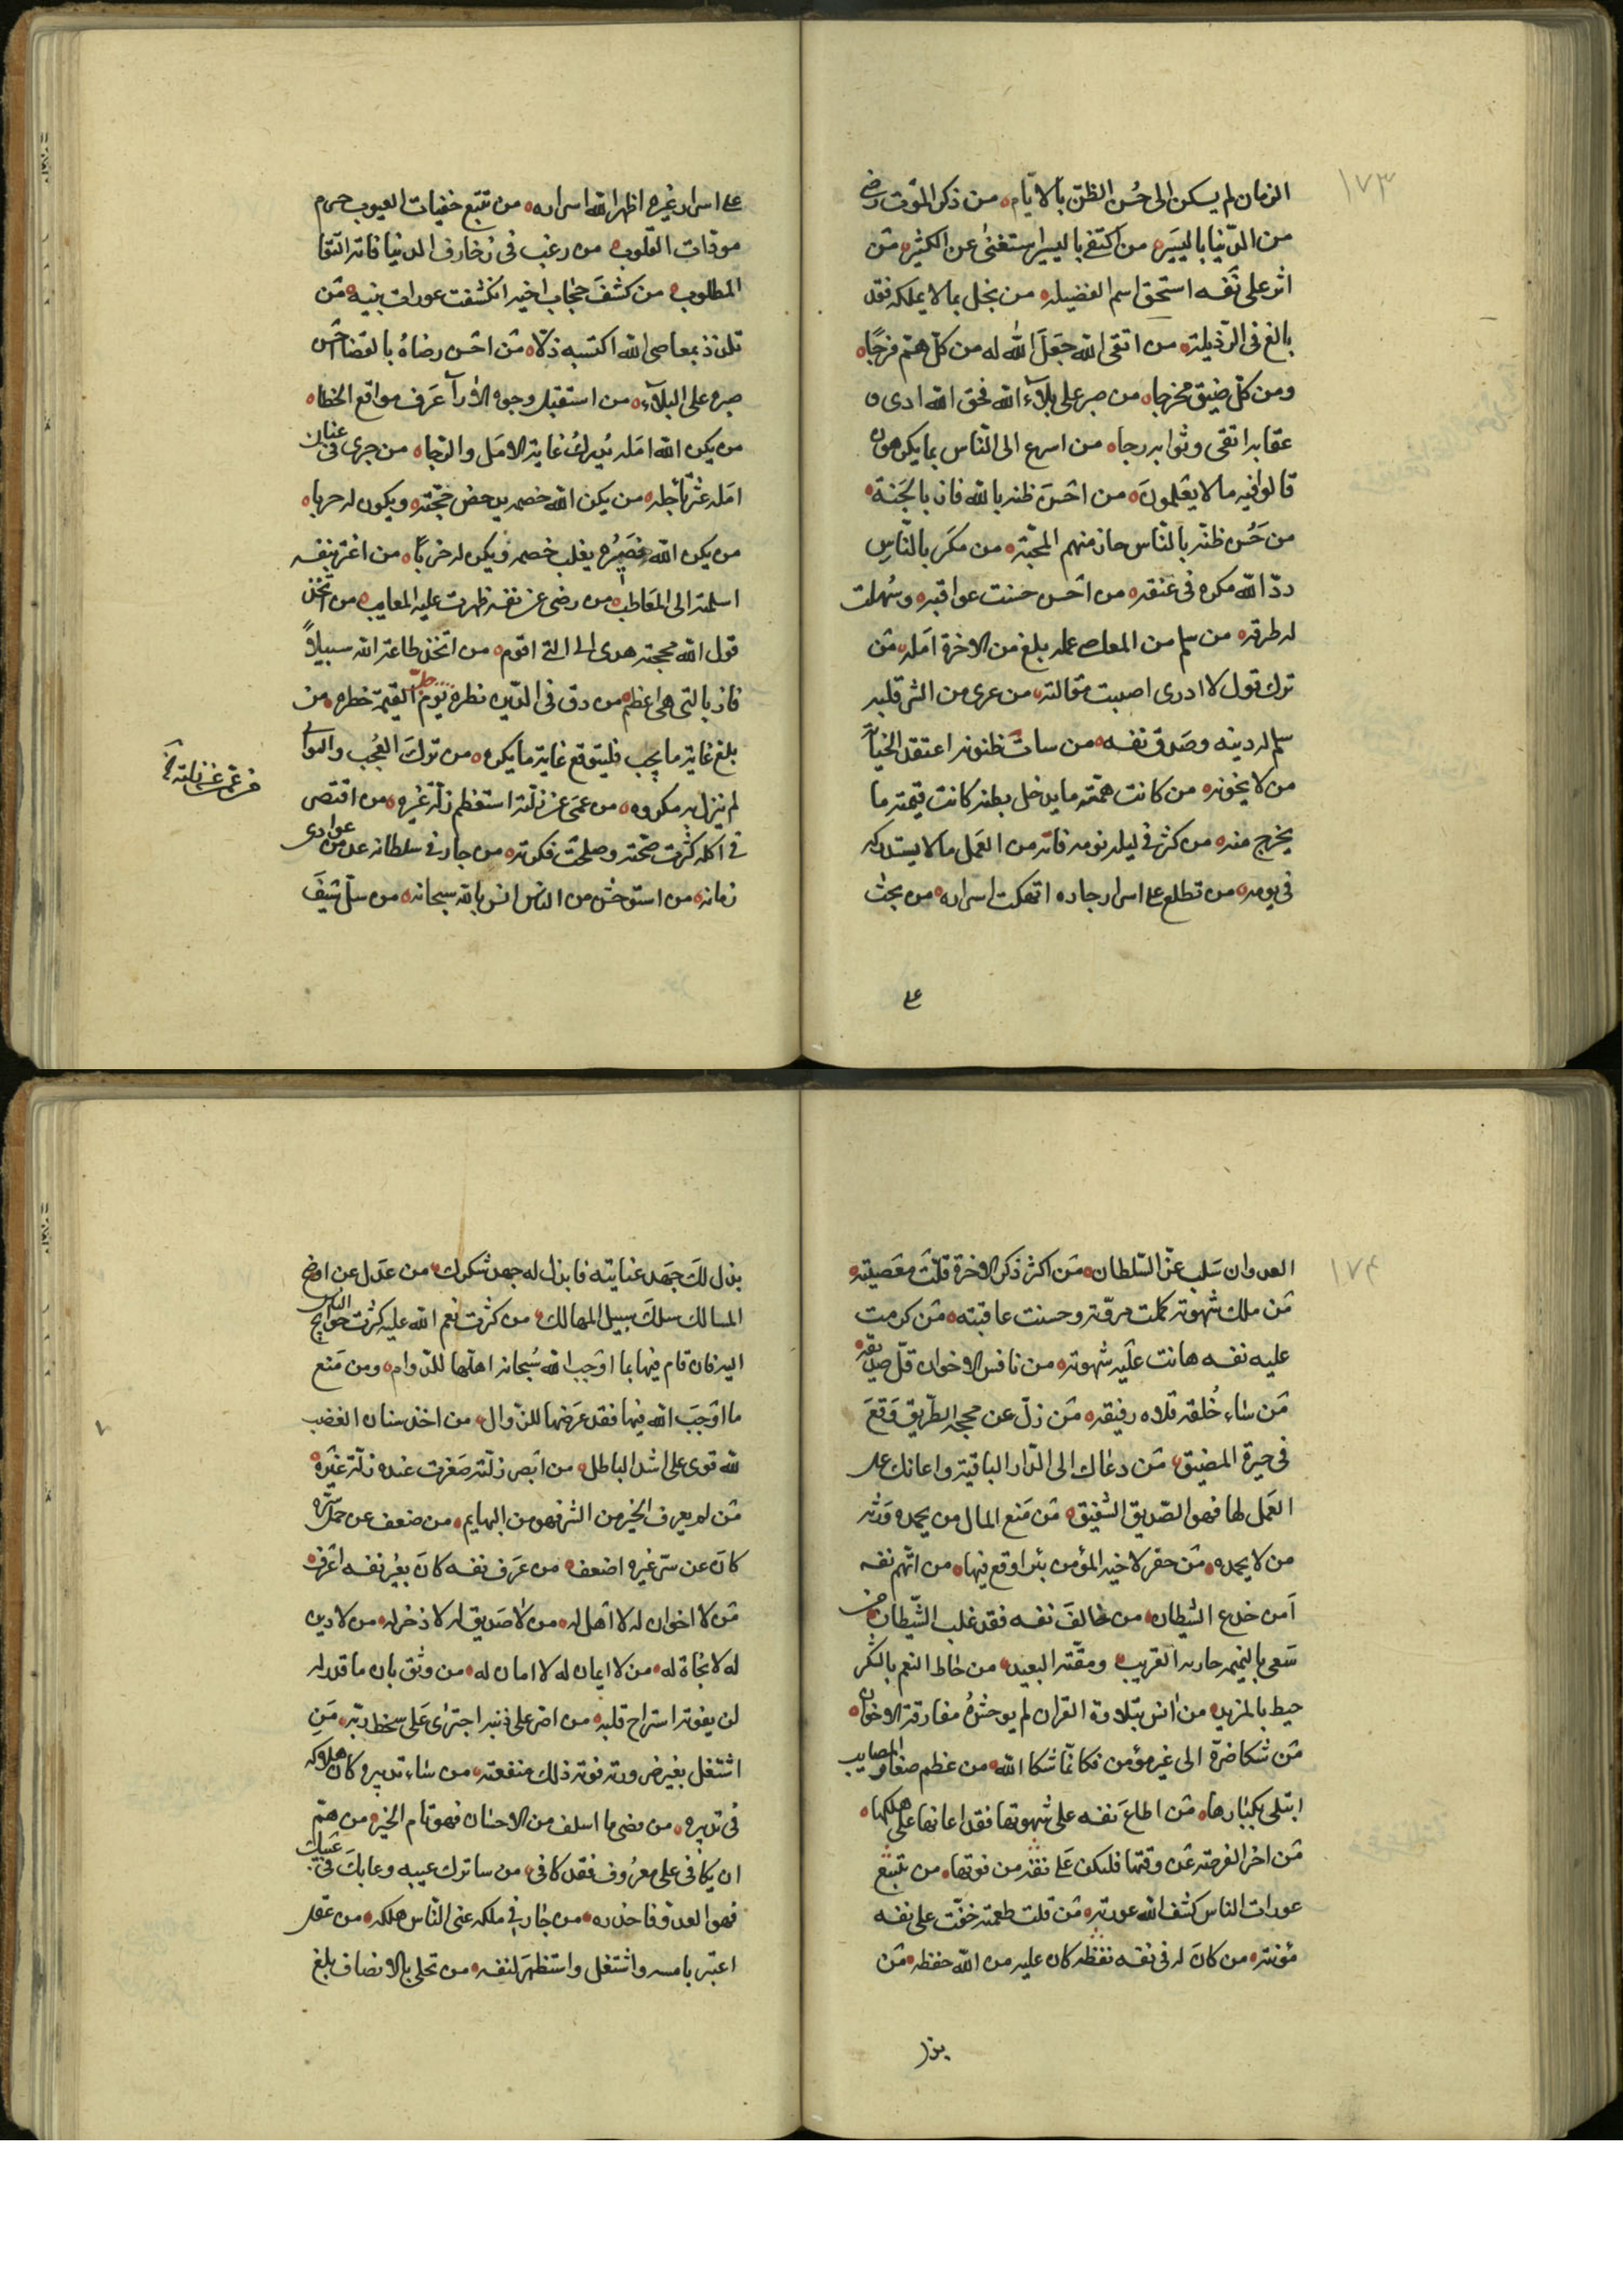 ١٧٣
الزمان لم يسكن الى حُسن الظنّ بالايّام من ذكر الموت رضى
من الدّنيا باليسير من اكتفى باليسير استغنى عن الكثير من
اثر على نفسه استحق اسم الفضيله من بخل بما لا يملكه فقد
بالغ فى الرّذيلة من اتقى الله جَعَلَ الله له من كلّ همّ فرجًا
ومن كلّ ضيق مخرجا من صبر على بلاء الله فحق الله ادى و
عقابه اتقى وثوابه رجا من اسرع الى النّاس بما يكرهون
قالوا فيه ما لا يعلمونَ من احسَن ظنه بالله فاز بالجنة
من حَسُن ظنّه بالنّاس حاز منهم المحبّة من مكَر بالنّاسِ
ردّ الله مكره فى عنقه من احسن حسنت عواقبه وسُهلت
له طرقه من سلم من المعاصى عمله بلغ من الاخرة امله من
ترك قول لا ادرى اصيبت مقالته من عرى من الشر قلبه
سلم له دينه وصَدق نفسه من ساءت ظنونه اعتقد الخيانة
من لا يخونه من كانت همّته ما يدخل بطنه كانت قيمته ما
يخرج منه من كثر فى ليله نومه فاته من العَمل ما لا يستدركه
فى يومه من تطلع على اسرار جاره اتهكت اسراره من بحث
على
على اسرار غيره اظهر الله اسراره من تتبع خفيات العيوب حرم
مودّات القلوب من رغب فى زخارف الدنيا فاته البقا
المطلوب من كشفَ حجاب اخيه انكشفت عورات بنيه من
تلذذ بمعاصى الله اكتسبه ذلّا من احسن رضاهُ بالقضا احسن
صبره على البلآء من استقبل وجوه الارآ عَرف مواقع الخطا
من يكن الله امَله يُدرك غاية الامَل والرّجا من جرى فى عنان
امَله عثر باجله من يكن الله خصمه يدحض حجّته ويكون له حربا
من يكن الله نصيره يغلب خصمه ويكن له حزبًا من اغتر بنفسه
اسلمته الى المَعاطب من رضى عن نفسه ظهرت عليه المعايب من اتّخذ
قول الله محجته هدى الى التى اقوم من اتخذ طاعة الله سبيلًا
فاز بالتى هى اعظم من دق فى الدّين نظره جلّ يوم القيٰمة خطره من
بلغ غاية ما يحب فليتوقع غاية ما يكره من تركَ العُجب والتوانى
لم ينزل به مكروه من عمى عن زلّته استعظم زلّة غيره من اقتصر
فى اكله كثرت صحّته وصلحت فكرته من جار فى سلطانه عدّ من عوادى
زمانه من استوحش من الناس انس بالله سبحانه من سلّ سَيفَ
١٧٤
العدوان سَلب عزّ السّلطان من اكثر ذكر الاخرة قلّت معصيته
من ملك شهوته كملت مروّته وحسنت عاقبته من كرمت
عليه نفسه هانت علَيه شهوته من نافس الاخوان قلّ صديقه
من ساء خُلقه قلاه رفيقه من زلّ عن محجة الطّريق وَقعَ
فى حيرة المضيق من دعاك الى الدّار الباقية واعانك على
العَمل لها فهو الصّديق الشفيق من مَنع المال من يحمده ورّثه
من لا يحمده من حفر لاخيه المؤمن بئرا وقع فيها من اتّهم نفسه
اَمن خدع الشيطان من خالفَ نفسه فقد غلب الشّيطان من
سَعى بالنميمه حاربه القريب ومقّته البعيد من حاط النعم بالشكر
حيط بالمزيد من انس بتلاوة القران لم يوحشهُ مفارقة الاخوان
من شكا ضرّه الى غير مؤمن فكانّما شكا الله من عظم صغار المصايب
ابتلى بكبارها من اطاعَ نفسه على شهوتها فقد اعانها على هلكها
من اخر الفرصة عن وقتها فليكن عَلى ثقة من فوتها من تتبع
عورات الناس كشف الله عورته من قلت طعمته خفّت على نفسه
مؤنته من كانَ له فى نفسه يقظه كان عليه من الله حفظه من
بذل
بذل لكَ جهد عنايته فابذل له جهد شكرك من عدَل عن اوضح
المسالك سلكَ سبيل المهالك من كثرت نعم الله عليه كثرت حوايج الناس
اليه فان قام فيها بما اوجَب الله سُبحانه اهلها للدّوام ومن مَنع
ما اوجَبَ الله فيها فقد عرضها للزّوال من اخذ سنان الغضب
لله قوى على اشد الباطل من اَبصر زلّته صَغرت عنده زلّة غيره
من لم يعرف الخير من الشر فهو من البهايم من ضعف عن حمل سرّه
كانَ عن سرّ غيره اضعف من عَرف نفسه كانَ بغير نفسه اعرف
من لا اخوان له لا اهل له من لا صَديق له لا ذخر له من لا دين
له لا نجاة له من لا ايمان له لا امان له من وثق بان ما قدر له
لن يفوته استراح قلبه من اصر على ذنبه اجترى على سخط ربّه مَن
اشتغل بغير ضرورته فوته ذلك منفعته من ساء تدبيره كان هلاكه
فى تدبيره من مضى ما اسلف من الاحسان فهو تام الخير من همّ
ان يكافى على معرُوف فقد كافى من ساترك عيبه وعابكَ فى غيبك
فهو العدو فاحذره من جار فى ملكه عنى النّاس هلكه من عقل
اعتبر بامسه واشتغل واستظهَر لنفسه من تحلى بالانصاف بلغ